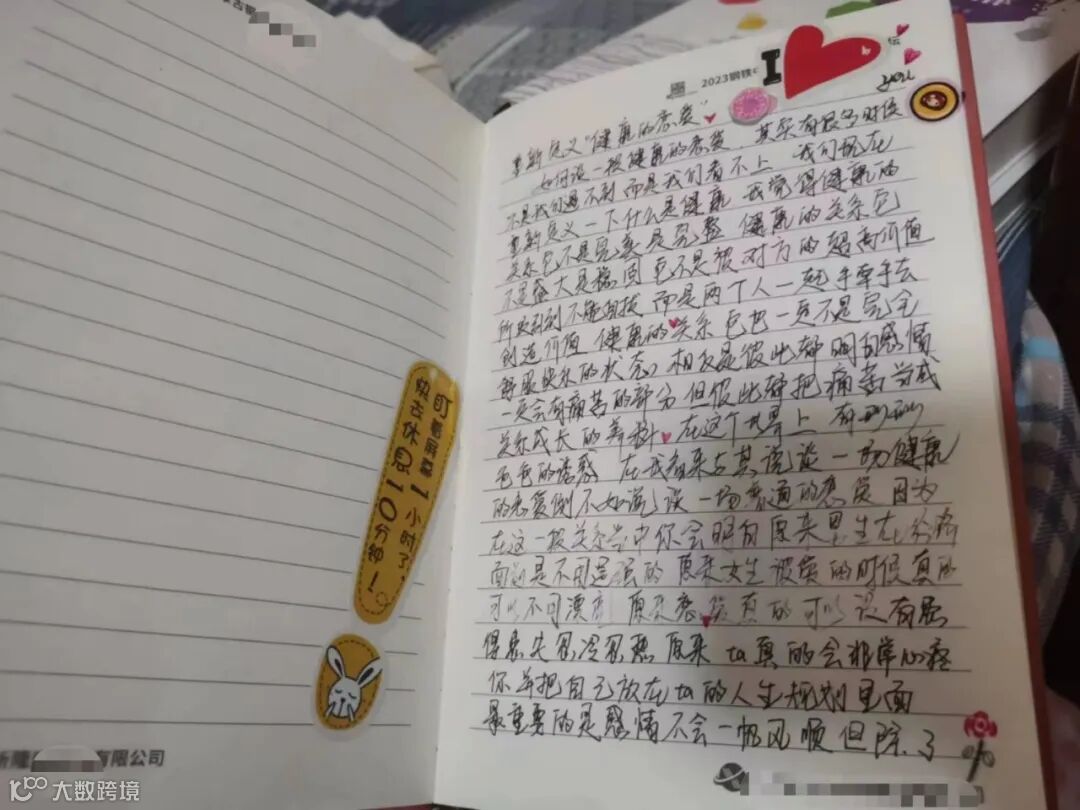 盯着屏幕1小时了，
快去休息10分钟！
有限公司
大数跨境
2023钢铁
I
you
重新定义"健康的恋爱"
如何谈一段健康的恋爱，其实有很多时候
不是我们遇不到而是我们看不上 我们现在
重新定义一下什么是健康 我觉得健康的
关系它不是完美是完整 健康的关系它
不是盛大是稳固 它不是被对方的超高价值
所吸引到不能自拔 而是两个人一起手牵手去
创造价值 健康的关系它也一定不是完全
舒服快乐的状态 相反是彼此都明白感情
一定会有痛苦的部分但彼此都把痛苦当成
关系成长的养料 在这个世界上 有形形
色色的诱惑 在我看来与其说谈一场健康
的恋爱倒不如说谈一场普通的恋爱 因为
在这一段关系当中你会明白原来男生在你
面前是不用逞强的 原来女生被爱的时候真的
可以不用漂亮 原来恋爱真的可以没有患
得患失忽冷忽热 原来ta真的会非常心疼
你并把自己放在ta的人生规划里面
最重要的是感情不会一帆风顺但除了